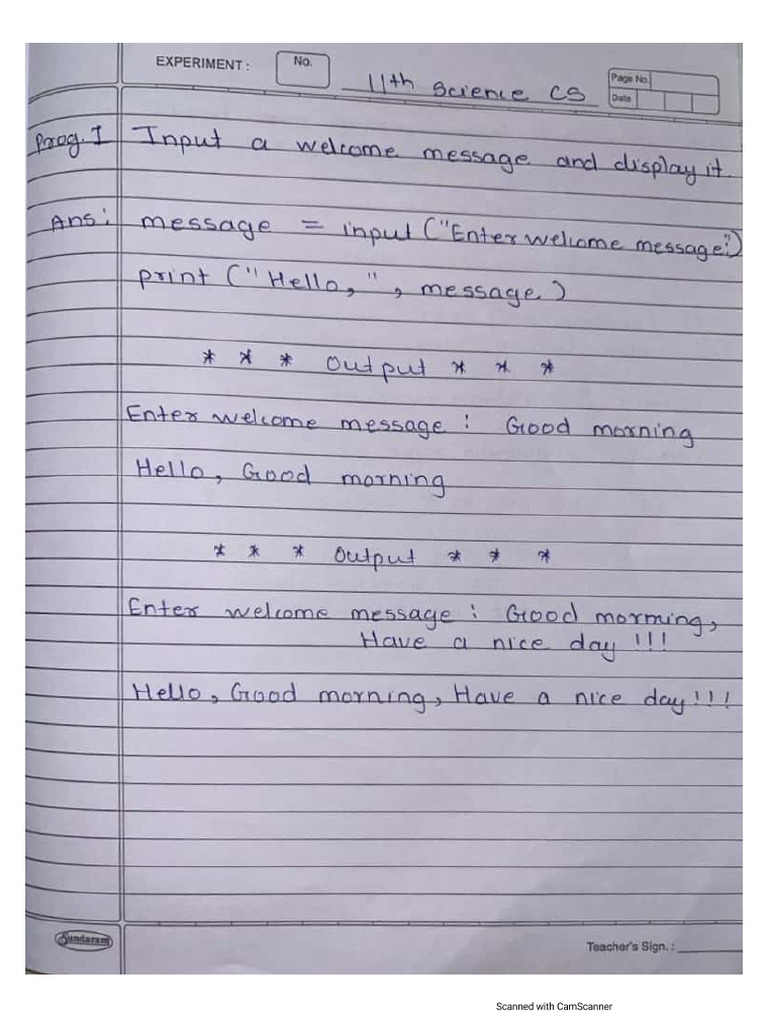 EXPERIMENT : No. 11th Science CS Page No.
Date
Prog. 1 Input a welcome message and display it
Ans: message = input ("Enter welcome message:")
print ("Hello,", message)
* * * Output * * *
Enter welcome message : Good morning
Hello, Good morning
* * * Output * * *
Enter welcome message : Good morming,
Have a nice day !!!
Hello, Good morning, Have a nice day !!!
Sundaram
Teacher's Sign. :
Scanned with CamScanner